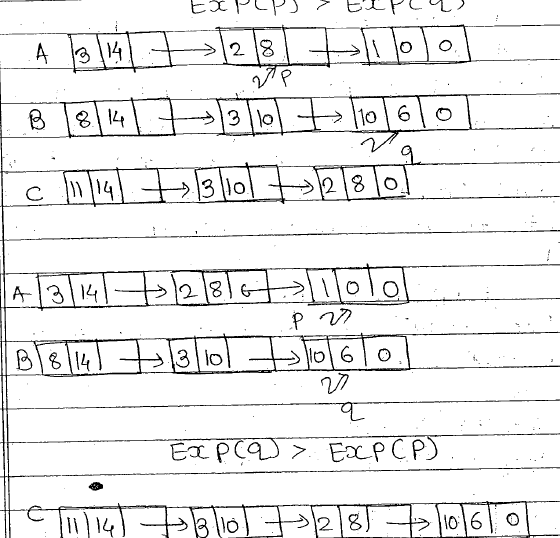 EXP(P) > EXP(q)
A 3 14 → 2 8 → 1 0 0
P
B 8 14 → 3 10 → 10 6 0
q
C 11 14 → 3 10 → 2 8 0
A 3 14 → 2 8 → 1 0 0
P
B 8 14 → 3 10 → 10 6 0
q
EXP(q) > EXP(P)
C 11 14 → 3 10 → 2 8 → 10 6 0